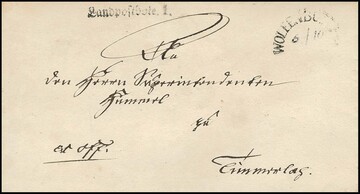 Landpostbote. 1.
WOLFENBÜ
6 / 10
An
den Herrn Superintendenten
Hummel
zu
Timmerlah.